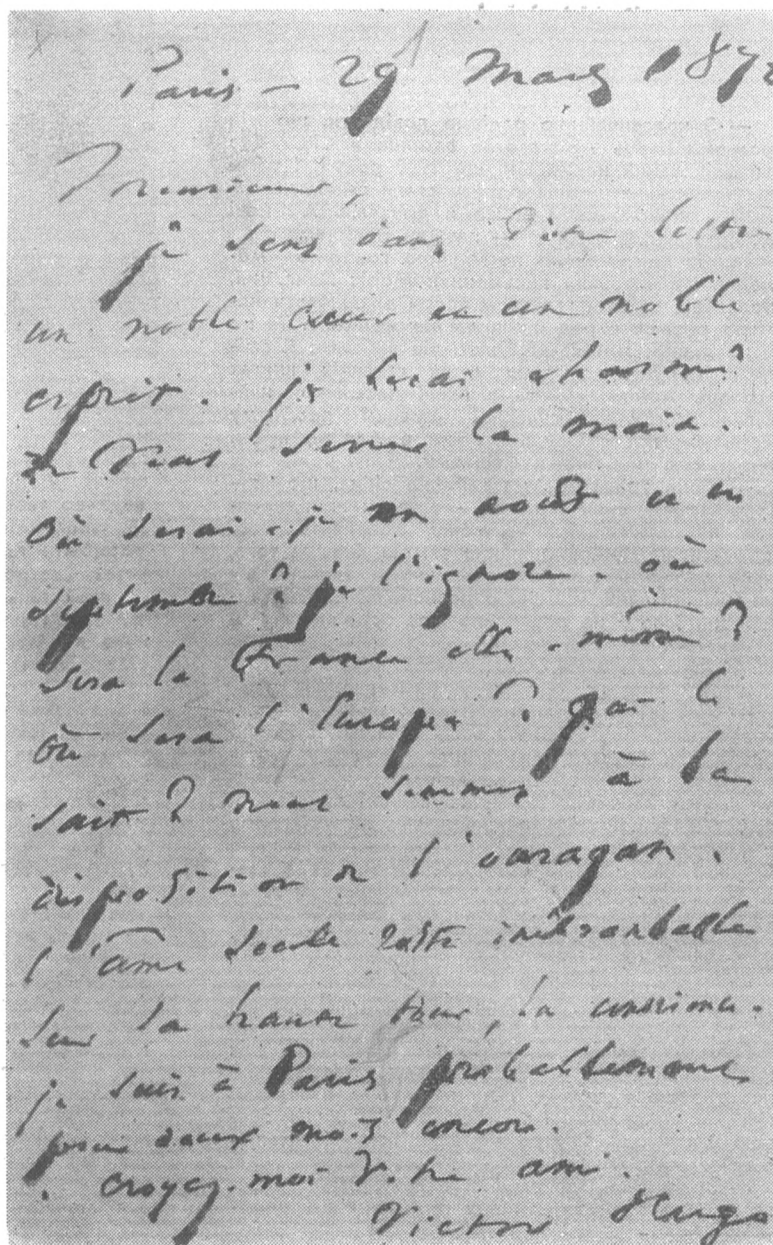 Paris – 29 mars 1872
Monsieur,
je sens dans votre lettre
un noble cœur et un noble
esprit. je serai charmé
de vous serrer la main.
Où serai-je en août et en
septembre ? je l'ignore. où
sera la France elle-même ?
où sera l'Europe ? qui le
sait ? nous sommes à la
disposition de l'ouragan.
l'âme seule reste inébranlable
sur la haute tour, la conscience.
je suis à Paris probablement
pour deux mois encore.
croyez-moi votre ami.
Victor Hugo